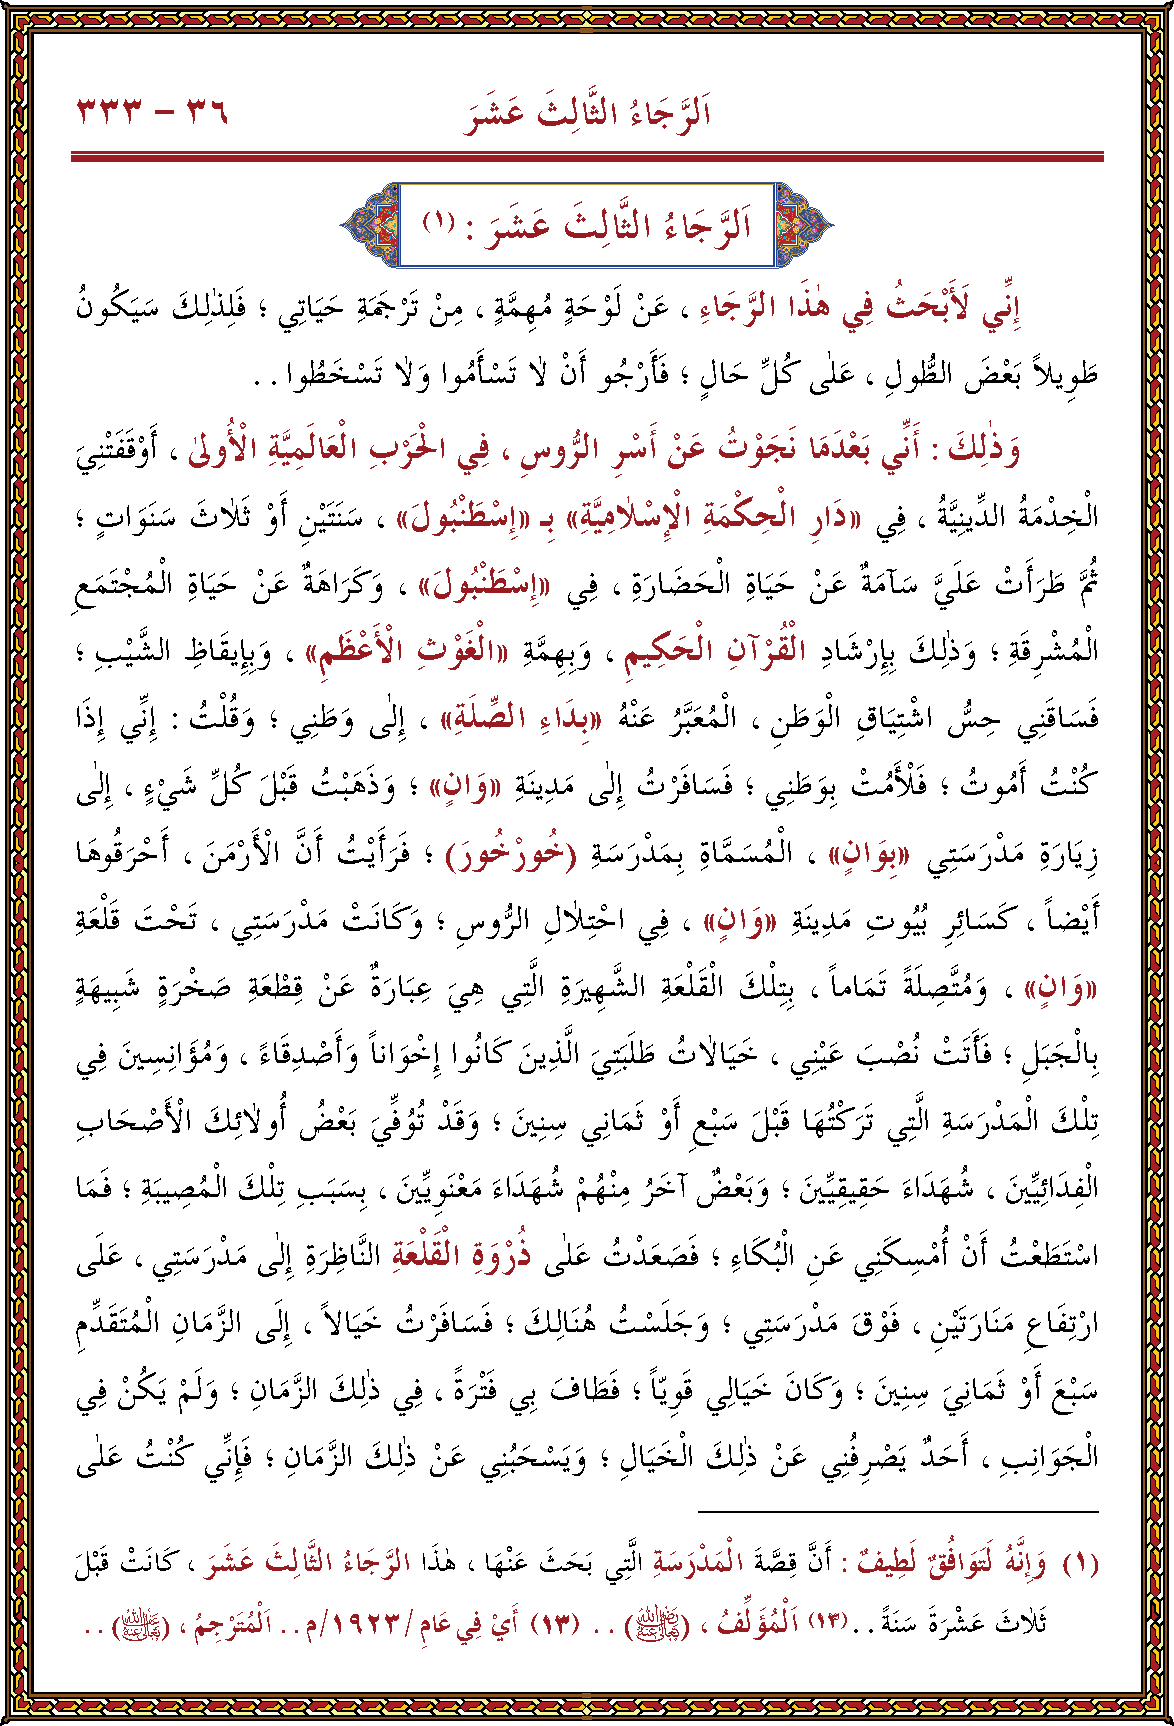 اَلرَّجَاءُ الثَّالِثَ عَشَرَ ٣٦ – ٣٣٣
اَلرَّجَاءُ الثَّالِثَ عَشَرَ : (١)
إِنِّي لَأَبْحَثُ فِي هٰذَا الرَّجَاءِ ، عَنْ لَوْحَةٍ مُهِمَّةٍ ، مِنْ تَرْجَمَةِ حَيَاتِي ؛ فَلِذٰلِكَ سَيَكُونُ
طَوِيلاً بَعْضَ الطُّولِ ، عَلٰى كُلِّ حَالٍ ؛ فَأَرْجُو أَنْ لاٰ تَسْأَمُوا وَلاٰ تَسْخَطُوا . .
وَذٰلِكَ : أَنِّي بَعْدَمَا نَجَوْتُ عَنْ أَسْرِ الرُّوسِ ، فِي الْحَرْبِ الْعَالَمِيَّةِ الْأُولىٰ ، أَوْقَفَتْنِيَ
الْخِدْمَةُ الدِّينِيَّةُ ، فِي «دَارِ الْحِكْمَةِ الْإِسْلاٰمِيَّةِ» بِـ «إِسْطَنْبُولَ» ، سَنَتَيْنِ أَوْ ثَلاٰثَ سَنَوَاتٍ ؛
ثُمَّ طَرَأَتْ عَلَيَّ سَآمَةٌ عَنْ حَيَاةِ الْحَضَارَةِ ، فِي «إِسْطَنْبُولَ» ، وَكَرَاهَةٌ عَنْ حَيَاةِ الْمُجْتَمَعِ
الْمُشْرِقَةِ ؛ وَذٰلِكَ بِإِرْشَادِ الْقُرْآنِ الْحَكِيمِ ، وَبِهِمَّةِ «الْغَوْثِ الْأَعْظَمِ» ، وَبِإِيقَاظِ الشَّيْبِ ؛
فَسَاقَنِي حِسُّ اشْتِيَاقِ الْوَطَنِ ، الْمُعَبَّرُ عَنْهُ «بِدَاءِ الصِّلَةِ» ، إِلٰى وَطَنِي ؛ وَقُلْتُ : إِنِّي إِذَا
كُنْتُ أَمُوتُ ؛ فَلْأَمُتْ بِوَطَنِي ؛ فَسَافَرْتُ إِلٰى مَدِينَةِ «وَانٍ» ؛ وَذَهَبْتُ قَبْلَ كُلِّ شَيْءٍ ، إِلٰى
زِيَارَةِ مَدْرَسَتِي «بِوَانٍ» ، الْمُسَمَّاةِ بِمَدْرَسَةِ (خُورْخُورَ) ؛ فَرَأَيْتُ أَنَّ الْأَرْمَنَ ، أَحْرَقُوهَا
أَيْضاً ، كَسَائِرِ بُيُوتِ مَدِينَةِ «وَانٍ» ، فِي احْتِلاٰلِ الرُّوسِ ؛ وَكَانَتْ مَدْرَسَتِي ، تَحْتَ قَلْعَةِ
«وَانٍ» ، وَمُتَّصِلَةً تَمَاماً ، بِتِلْكَ الْقَلْعَةِ الشَّهِيرَةِ الَّتِي هِيَ عِبَارَةٌ عَنْ قِطْعَةِ صَخْرَةٍ شَبِيهَةٍ
بِالْجَبَلِ ؛ فَأَتَتْ نُصْبَ عَيْنِي ، خَيَالاٰتُ طَلَبَتِيَ الَّذِينَ كَانُوا إِخْوَاناً وَأَصْدِقَاءً ، وَمُؤَانِسِينَ فِي
تِلْكَ الْمَدْرَسَةِ الَّتِي تَرَكْتُهَا قَبْلَ سَبْعِ أَوْ ثَمَانِي سِنِينَ ؛ وَقَدْ تُوُفِّيَ بَعْضُ أُولاٰئِكَ الْأَصْحَابِ
الْفِدَائِيِّينَ ، شُهَدَاءَ حَقِيقِيِّينَ ؛ وَبَعْضٌ آخَرُ مِنْهُمْ شُهَدَاءَ مَعْنَوِيِّينَ ، بِسَبَبِ تِلْكَ الْمُصِيبَةِ ؛ فَمَا
اسْتَطَعْتُ أَنْ أُمْسِكَنِي عَنِ الْبُكَاءِ ؛ فَصَعَدْتُ عَلٰى ذُرْوَةِ الْقَلْعَةِ النَّاظِرَةِ إِلٰى مَدْرَسَتِي ، عَلَى
ارْتِفَاعِ مَنَارَتَيْنِ ، فَوْقَ مَدْرَسَتِي ؛ وَجَلَسْتُ هُنَالِكَ ؛ فَسَافَرْتُ خَيَالاً ، إِلَى الزَّمَانِ الْمُتَقَدِّمِ
سَبْعَ أَوْ ثَمَانِيَ سِنِينَ ؛ وَكَانَ خَيَالِي قَوِيّاً ؛ فَطَافَ بِي فَتْرَةً ، فِي ذٰلِكَ الزَّمَانِ ؛ وَلَمْ يَكُنْ فِي
الْجَوَانِبِ ، أَحَدٌ يَصْرِفُنِي عَنْ ذٰلِكَ الْخَيَالِ ؛ وَيَسْحَبُنِي عَنْ ذٰلِكَ الزَّمَانِ ؛ فَإِنِّي كُنْتُ عَلٰى
(١) وَإِنَّهُ لَتَوَافُقٌ لَطِيفٌ : أَنَّ قِصَّةَ الْمَدْرَسَةِ الَّتِي بَحَثَ عَنْهَا ، هٰذَا الرَّجَاءُ الثَّالِثَ عَشَرَ ، كَانَتْ قَبْلَ
ثَلاٰثَ عَشْرَةَ سَنَةً . . (١٣) اَلْمُؤَلِّفُ ، (رضي الله تعالى عنه) . . (١٣) أَيْ فِي عَامِ /١٩٢٣/م . . اَلْمُتَرْجِمُ ، () . .